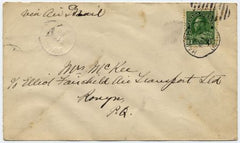 via Air Mail
Mrs. McKee
c/o Elliot Fairchild Air Transport Ltd
Rouyn,
P.Q.